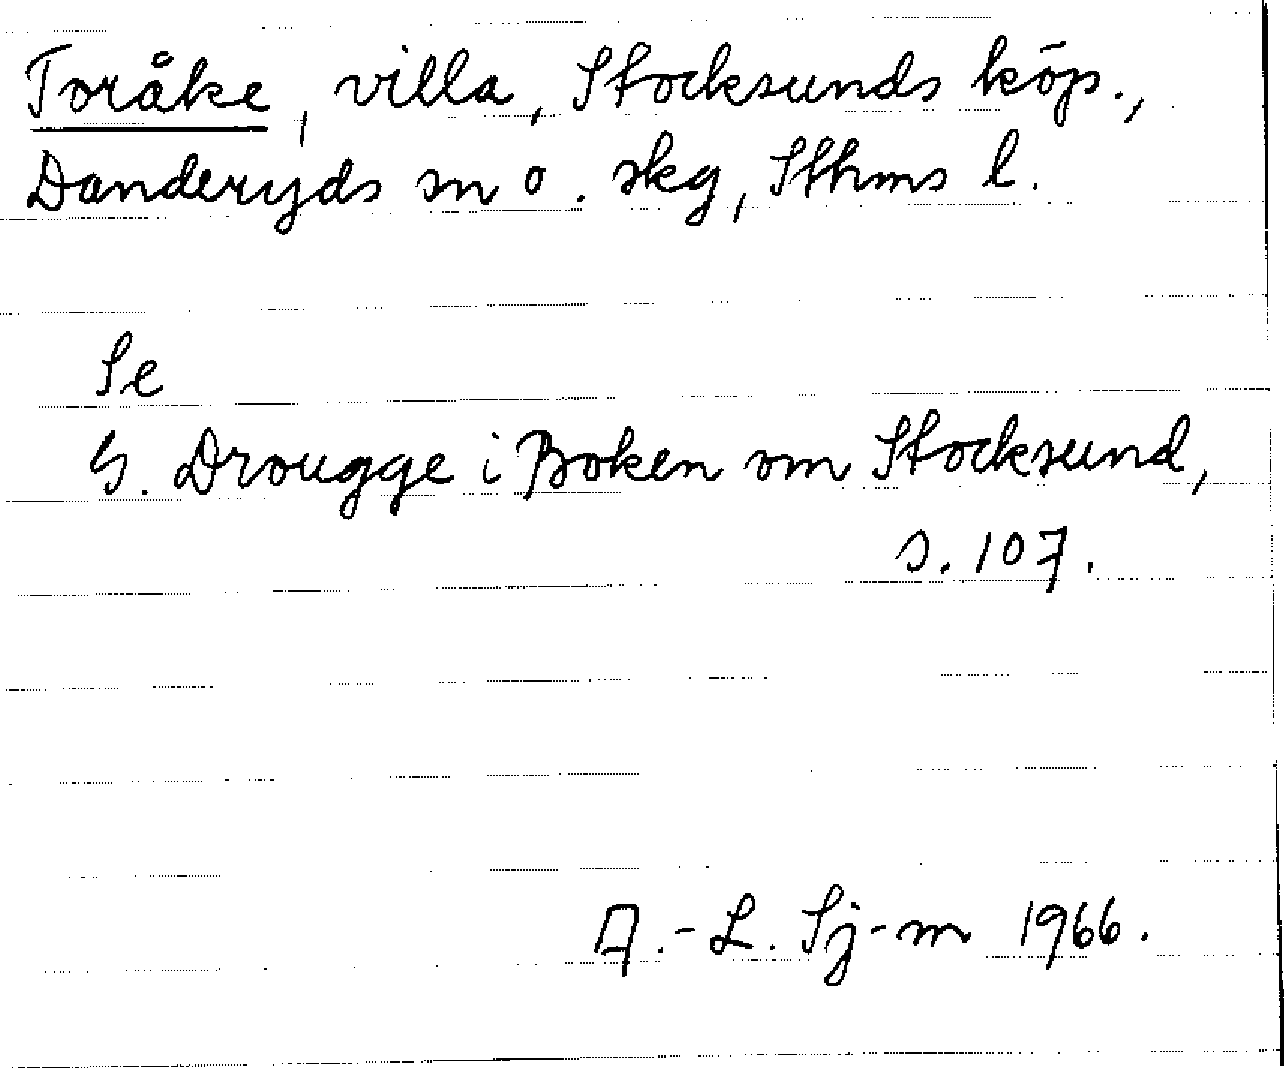 Toråke, villa, Stocksunds köp.,
Danderyds sn o. skg, Sthms l.
Se
G. Drougge i Boken om Stocksund,
s. 107.
A.-L. Sj-m 1966.